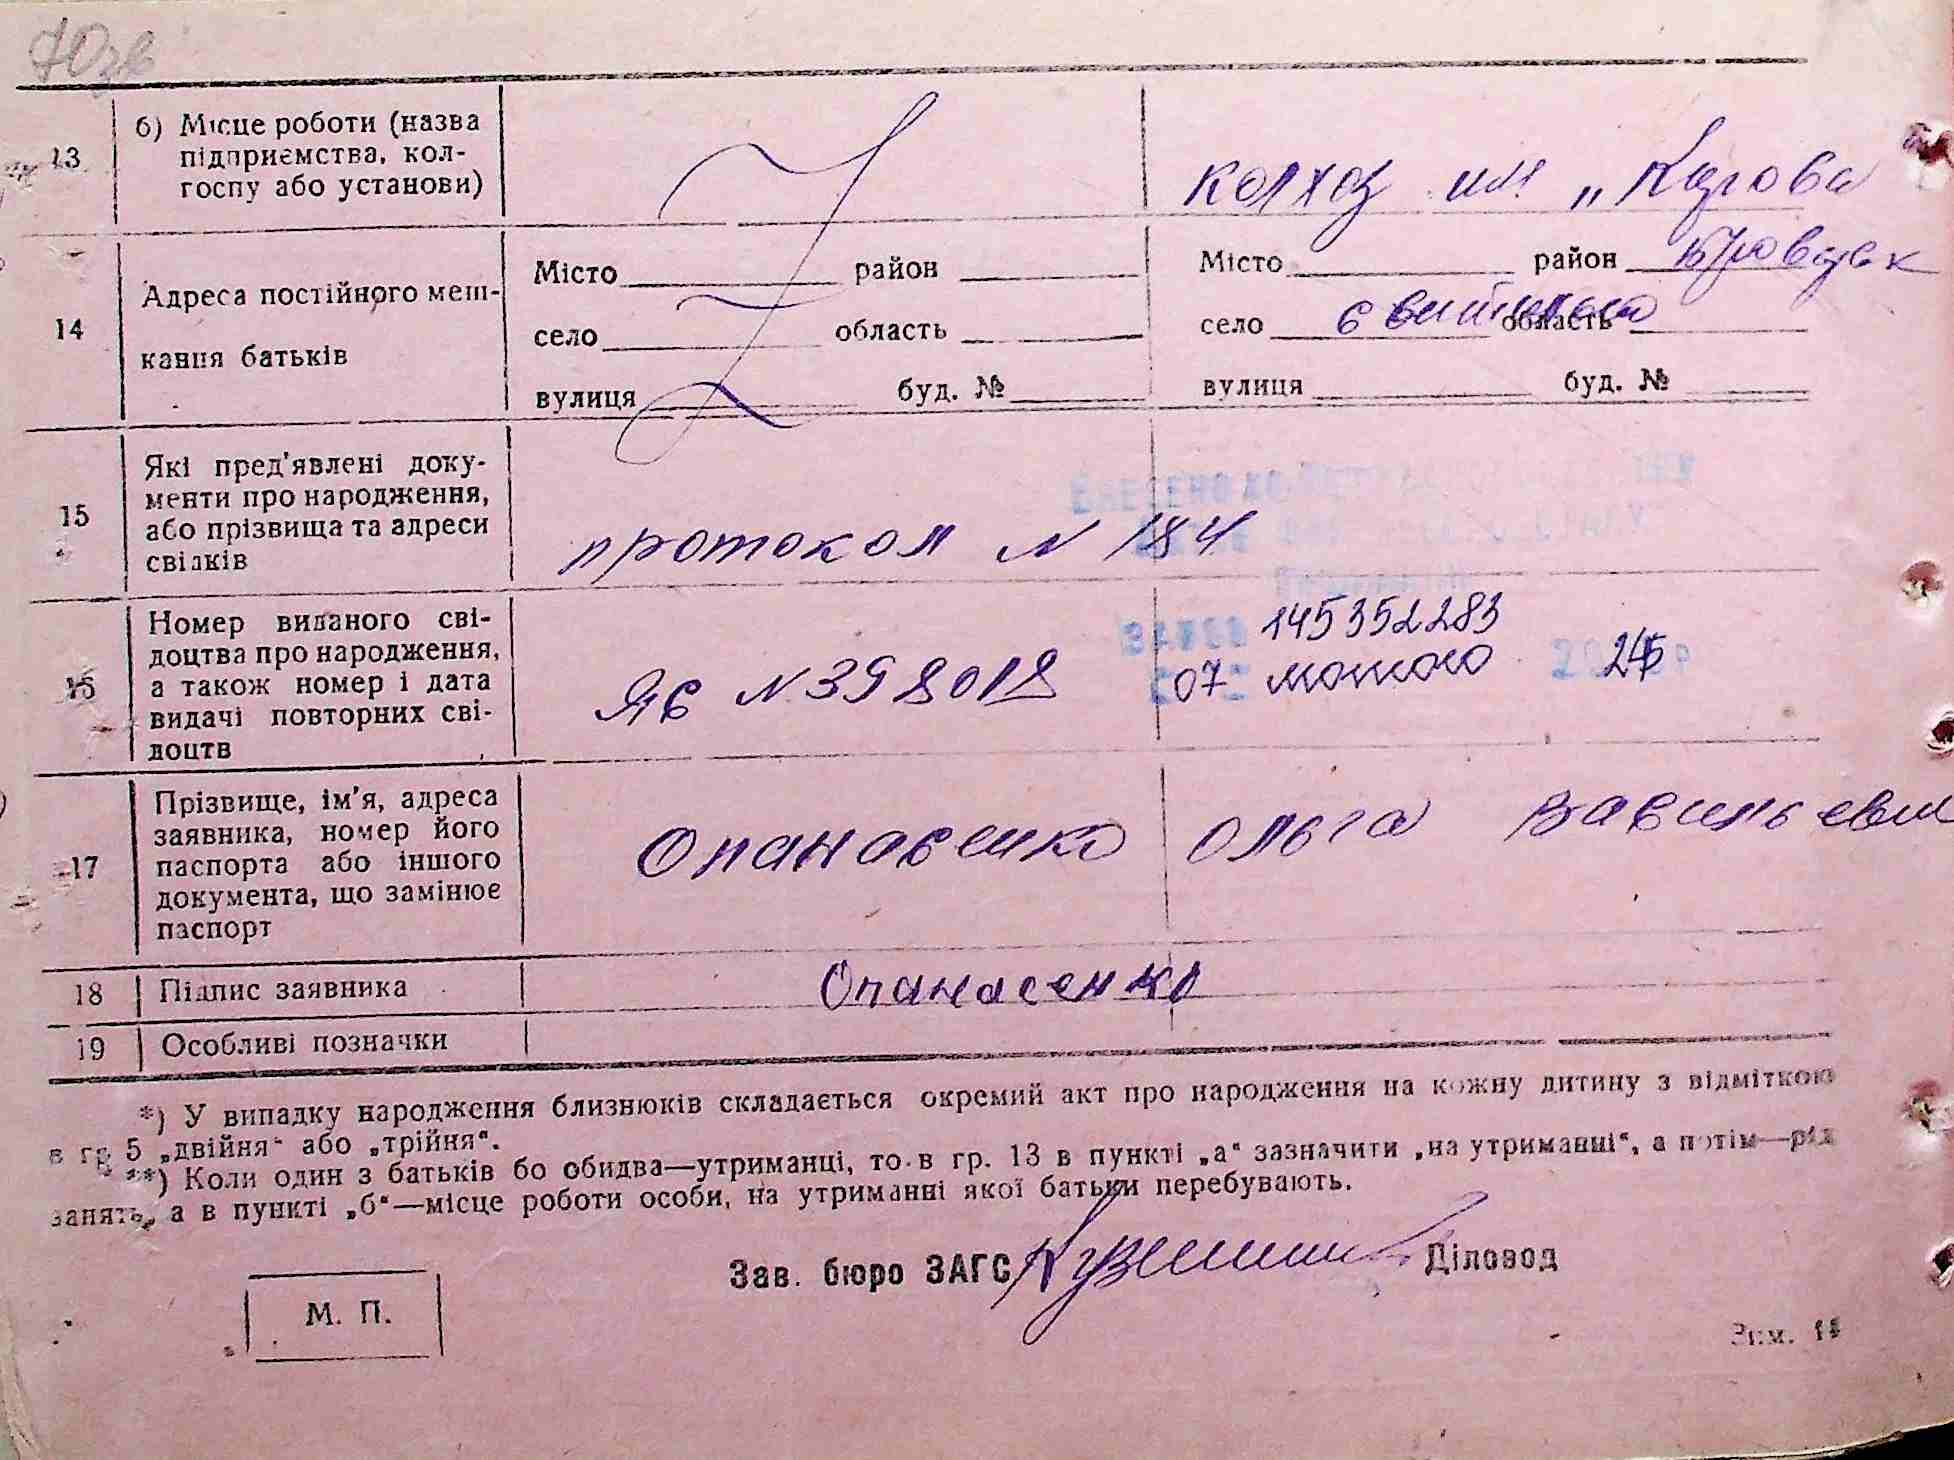 70зв
13
б) Місце роботи (назва
підприємства, кол-
госпу або установи)
колхоз им „Кирова
14
Адреса постійного меш-
кання батьків
Місто район
село область
вулиця буд. №
Місто район
село область
вулиця буд. №
15
Які пред'явлені доку-
менти про народження,
або прізвища та адреси
свідків
протокол N 184
16
Номер виданого сві-
доцтва про народження,
а також номер і дата
видачі повторних сві-
доцтв
ЯЄ N 398018
145352283
07 лютого
17
Прізвище, ім'я, адреса
заявника, номер його
паспорта або іншого
документа, що замінює
паспорт
Опанасенко Ольга
18 Підпис заявника
Опанасенко
19 Особливі позначки
*) У випадку народження близнюків складається окремий акт про народження на кожну дитину з відміткою
в гр. 5 „двійня“ або „трійня“.
**) Коли один з батьків бо обидва—утриманці, то в гр. 13 в пункті „а“ зазначити „на утриманні“, а потім—рід
занять, а в пункті „б“—місце роботи особи, на утриманні якої батьки перебувають.
Зав. бюро ЗАГС Діловод
М. П.